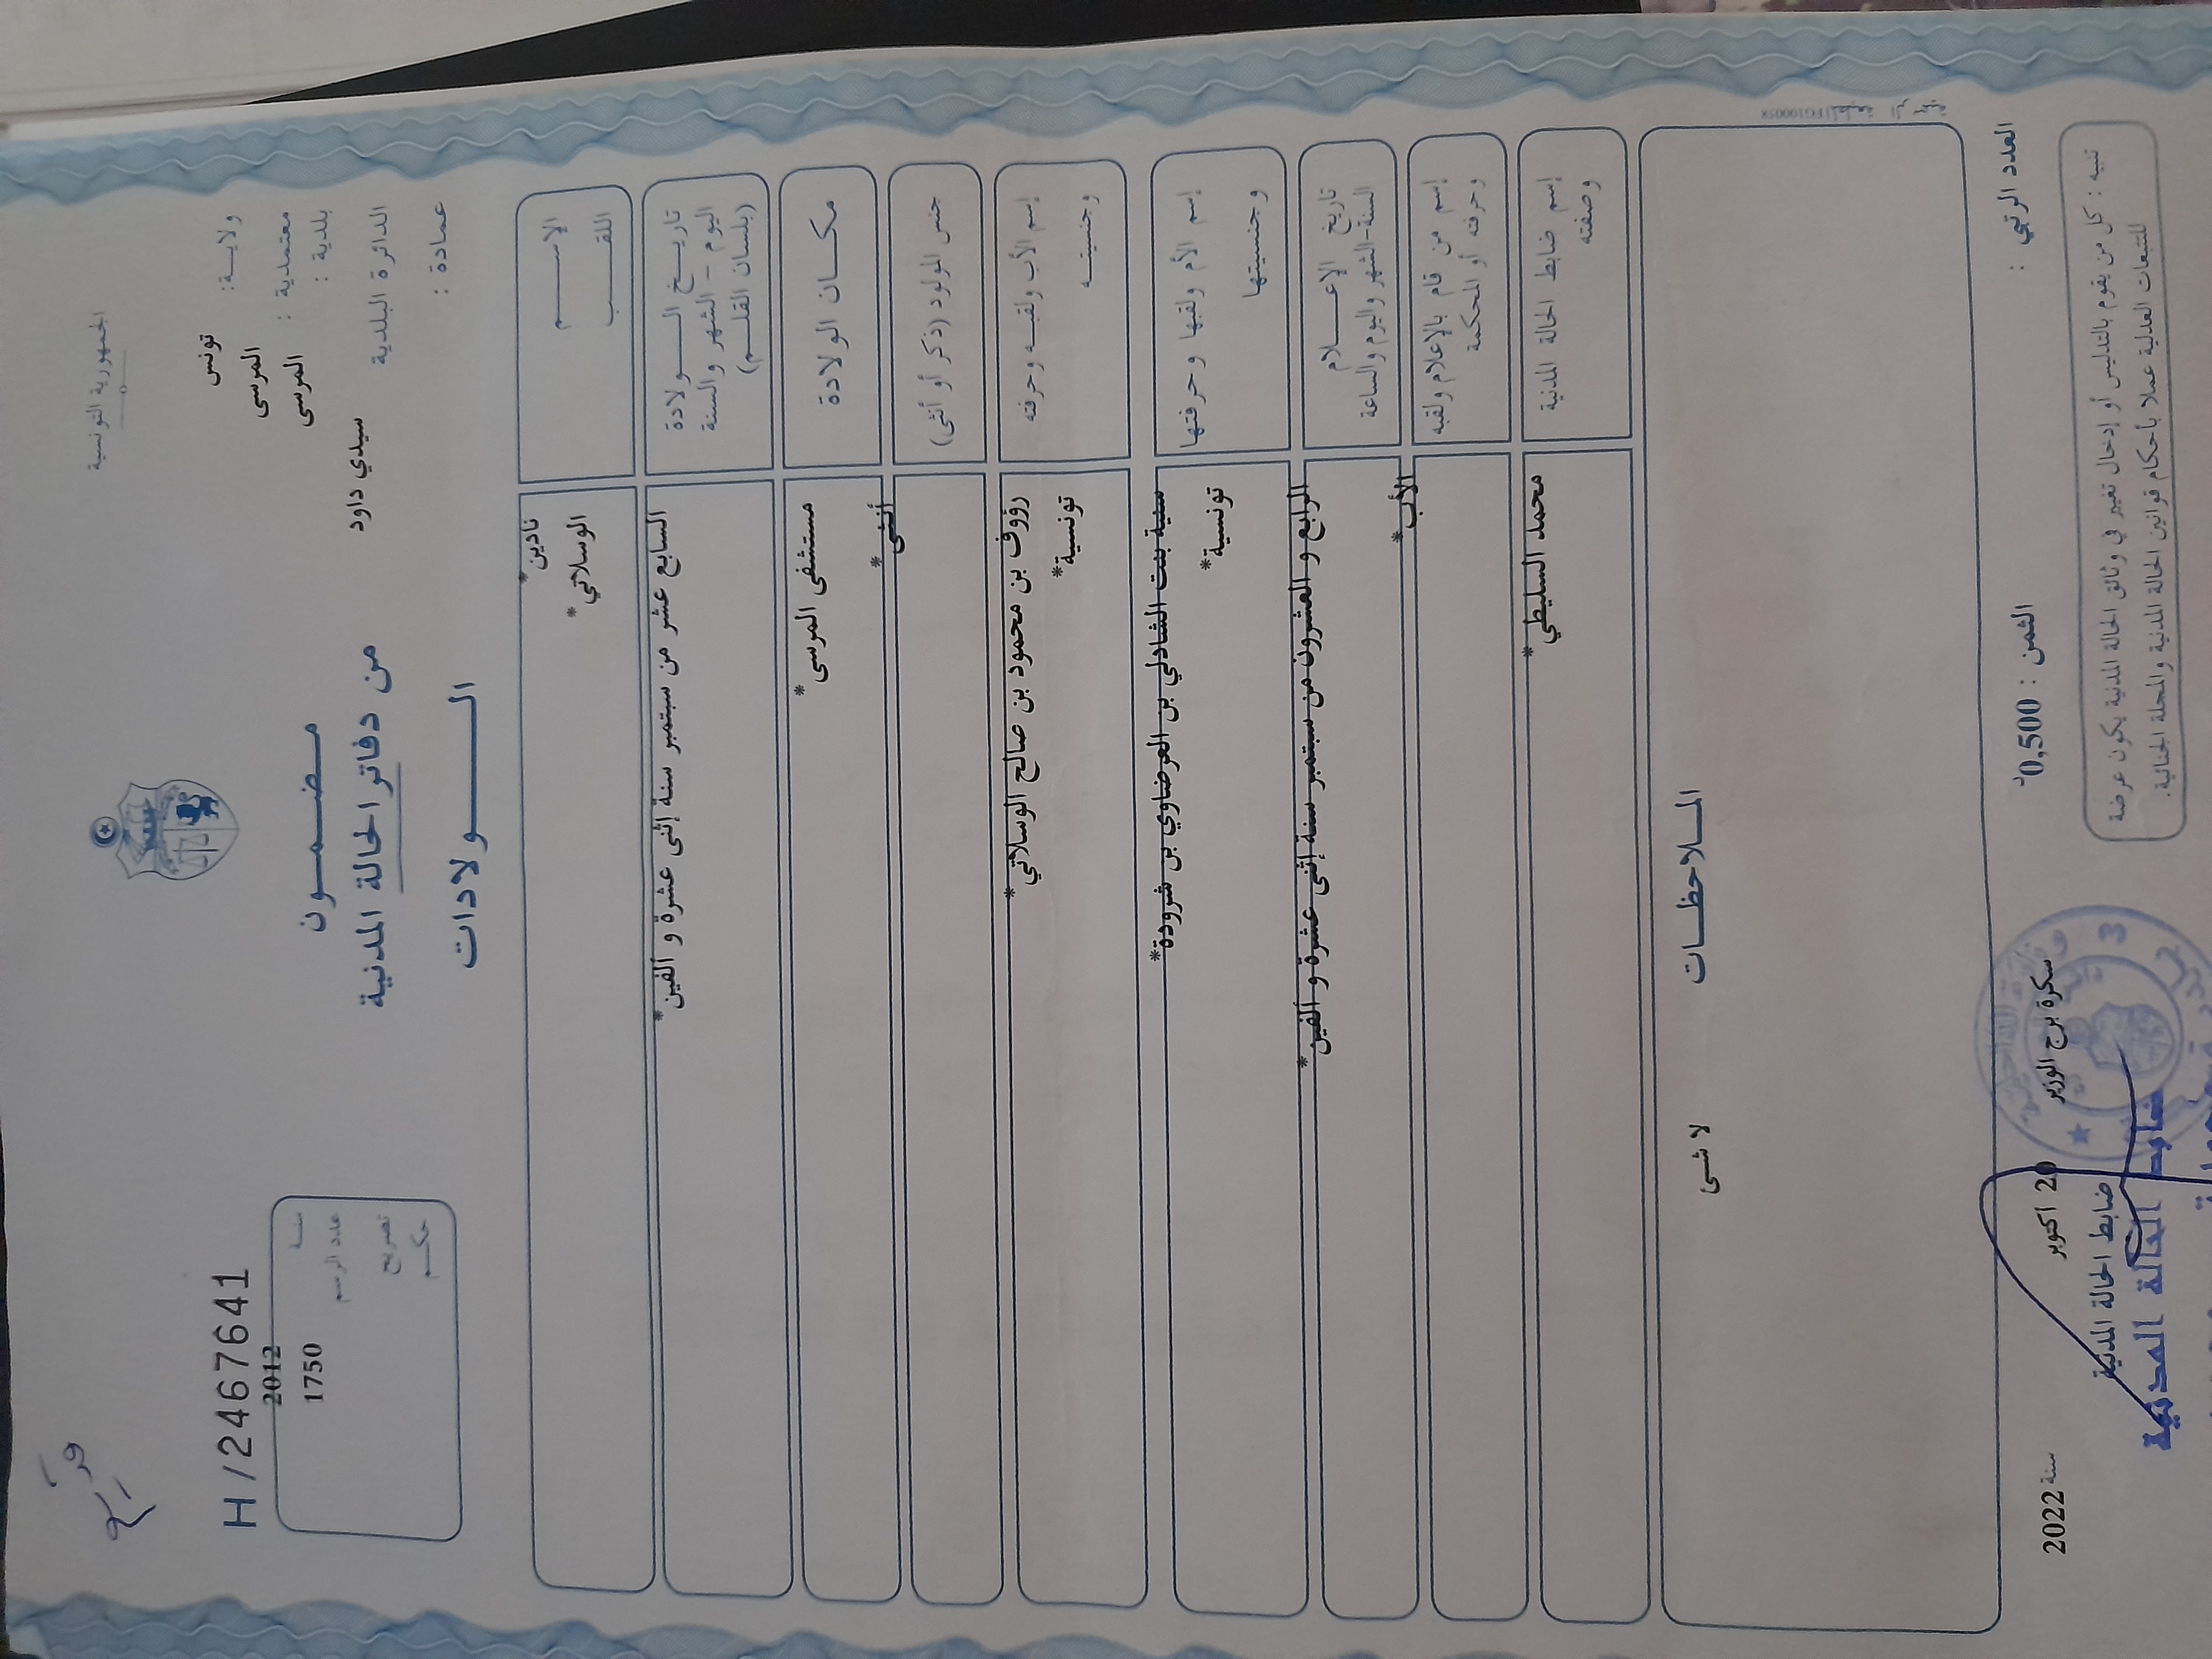 الجمهورية التونسية
ولايـــة: تونس
معتمدية : المرسى
بلدية : المرسى
الدائرة البلدية سيدي داود
عمادة :
مـــضـــمـــون
من دفاتر الحالة المدنية
الـــــولادات
H/2467641
سنــة 2012
عدد الرســم 1750
تصريح
حكــم
الإســـــم نادين*
اللقـــب الوسلاتي*
تاريـــخ الـــــولادة السابع عشر من سبتمبر سنة إثنى عشرة و ألفين*
اليوم - الشهر والسنة
(بلسان القلـــم)
مكـــان الولادة مستشفى المرسى*
جنس المولود (ذكر أو أنثى) أنثى*
إسم الأب ولقبـــه وحرفته رؤوف بن محمود بن صالح الوسلاتي*
وجنسيتـــه تونسية*
إسم الأم ولقبها وحرفتها سنية بنت الشاذلي بن العرضاوي بن شرودة*
وجنسيتها تونسية*
تاريخ الإعـــلام الرابع و العشرون من سبتمبر سنة إثنى عشرة و ألفين*
السنة-الشهر واليوم والساعة
إسم من قام بالإعلام ولقبه الأب*
وحرفته أو المحكمة
إسم ضابط الحالة المدنية محمد السليطي*
وصفته
المـــلاحظـــات
لا شى
العدد الرتبي :
الثمن : 0,500
سكرة برج الوزير 20 اكتوبر سنة 2022
ضابط الحالة المدنية
ضابط الحالة المدنية
تنبيه : كل من يقوم بالتدليس أو إدخال تغيير في وثائق الحالة المدنية يكون عرضة
للتتبعات العدلية عملا بأحكام قوانين الحالة المدنية والمجلة الجنائية.